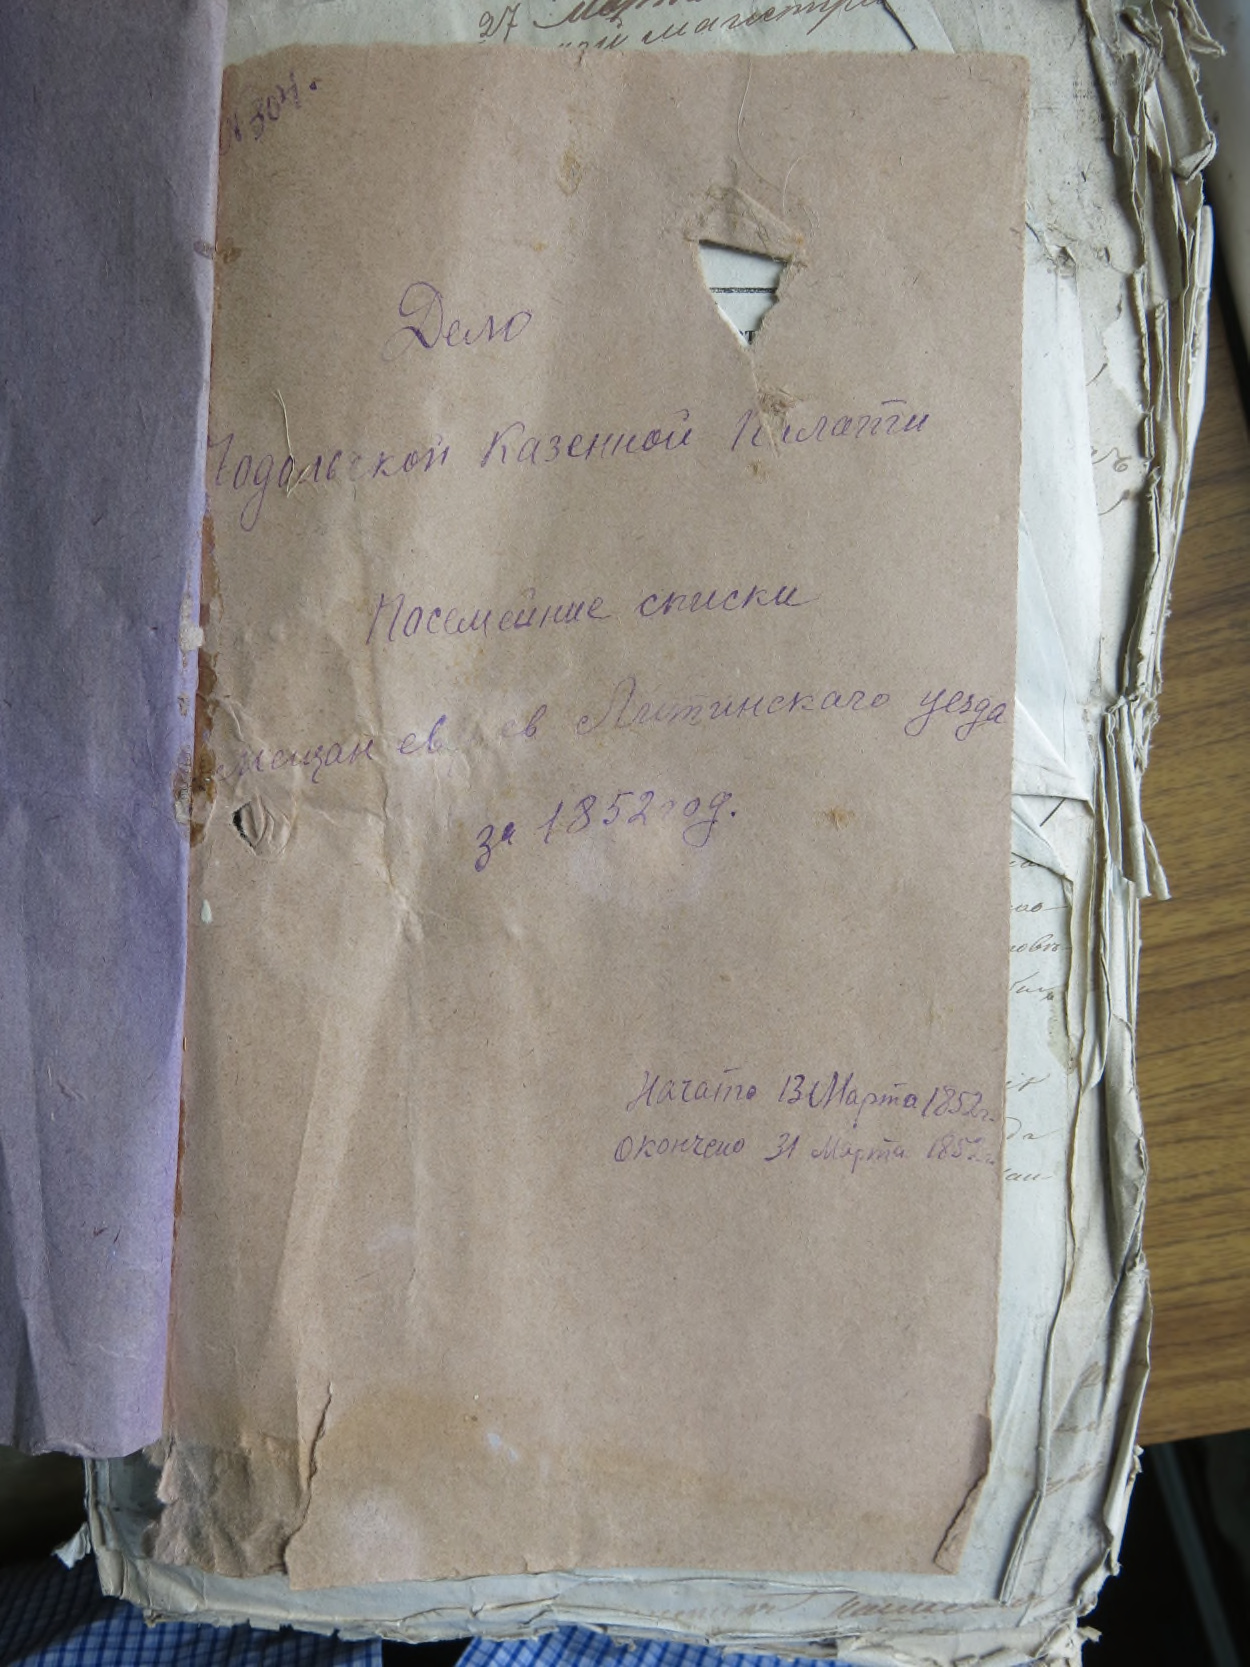 27
№ 304.
Дело
Подольской Казенной Палати
Посемейние списки
мещан евреев Литинскаго уезда
за 1852 год.
Начато 13 Марта 1852 г.
Окончено 31 Марта 1852 г.